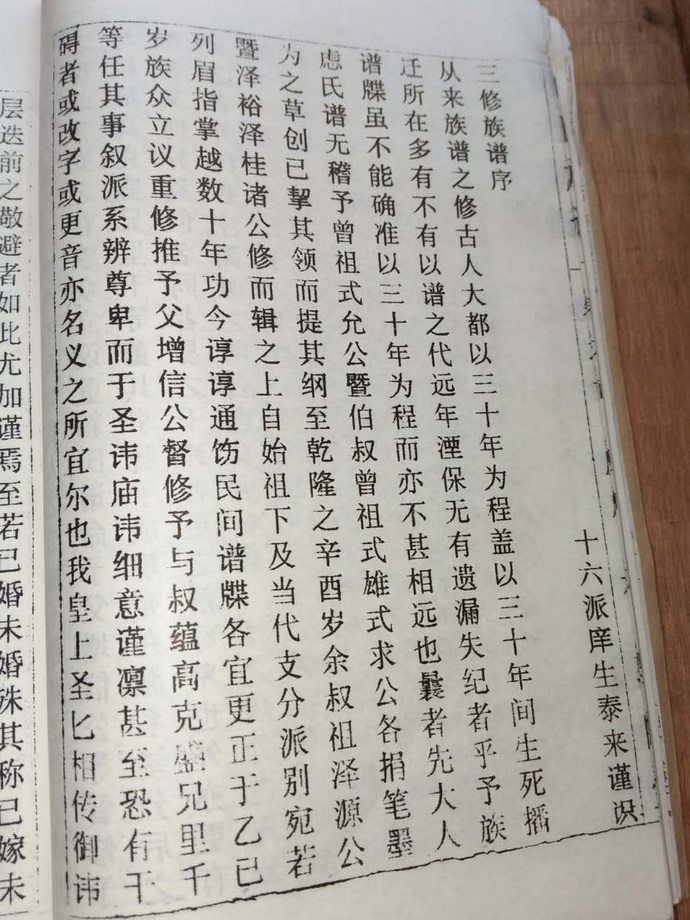 三修族谱序
十六派庠生泰来谨识
从来族谱之修古人大都以三十年为程盖以三十年间生死播
迁所在多有不有以谱之代远年湮保无有遗漏失纪者乎予族
谱牒虽不能确准以三十年为程而亦不甚相远也曩者先大人
虑氏谱无稽予曾祖式允公暨伯叔曾祖式雄式求公各捐笔墨
为之草创已挈其领而提其纲至乾隆之辛酉岁余叔祖泽源公
暨泽裕泽桂诸公修而辑之上自始祖下及当代支分派别宛若
列眉指掌越数十年功今谆谆通饬民间谱牒各宜更正于乙巳
岁族众立议重修推予父增信公督修予与叔蕴高克盛兄里千
等任其事叙派系辨尊卑而于圣讳庙讳细意谨凛甚至恐有干
碍者或改字或更音亦名义之所宜尔也我皇上圣匕相传御讳
层迭前之敬避者如此尤加谨焉至若已婚未婚殊其称已嫁未